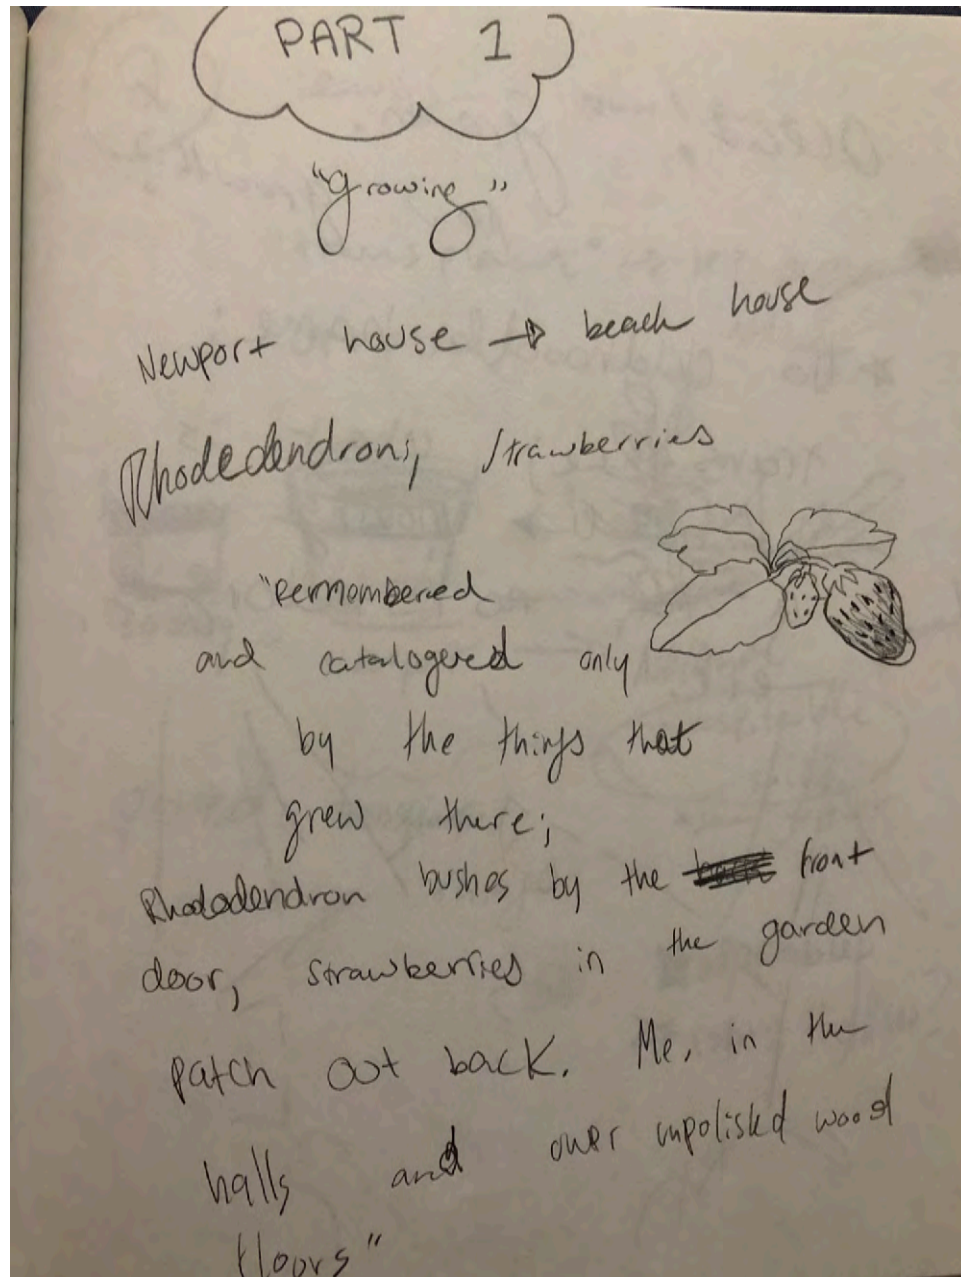 PART 1
"growing"
Newport house → beach house
Rhodedendrons, strawberries
"Remembered
and catalogered only
by the things that
grew there;
Rhododendron bushes by the front
door, strawberries in the garden
patch out back. Me, in the
halls and over unpolishd wood
floors"